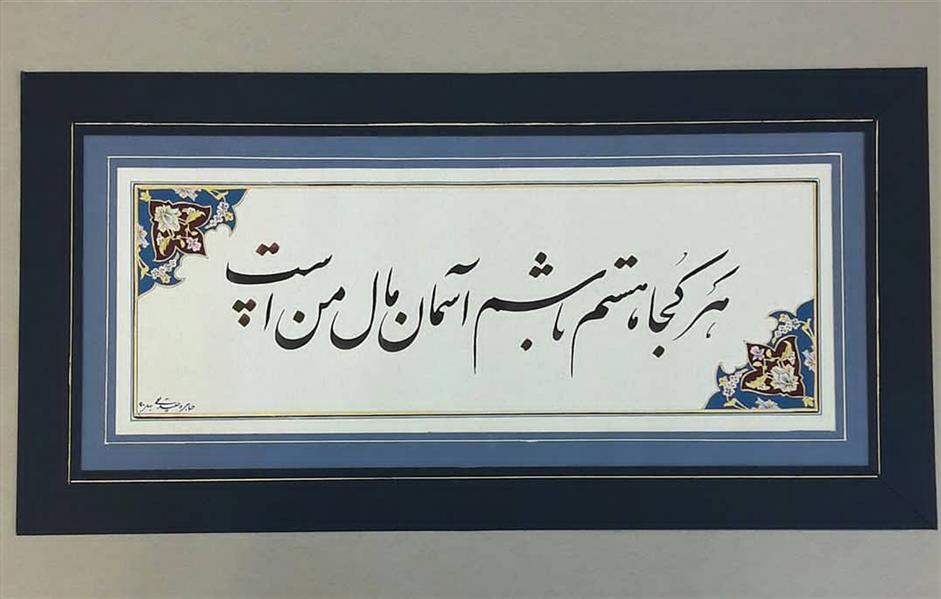 هر کجا هستم باشم آسمان مال من است